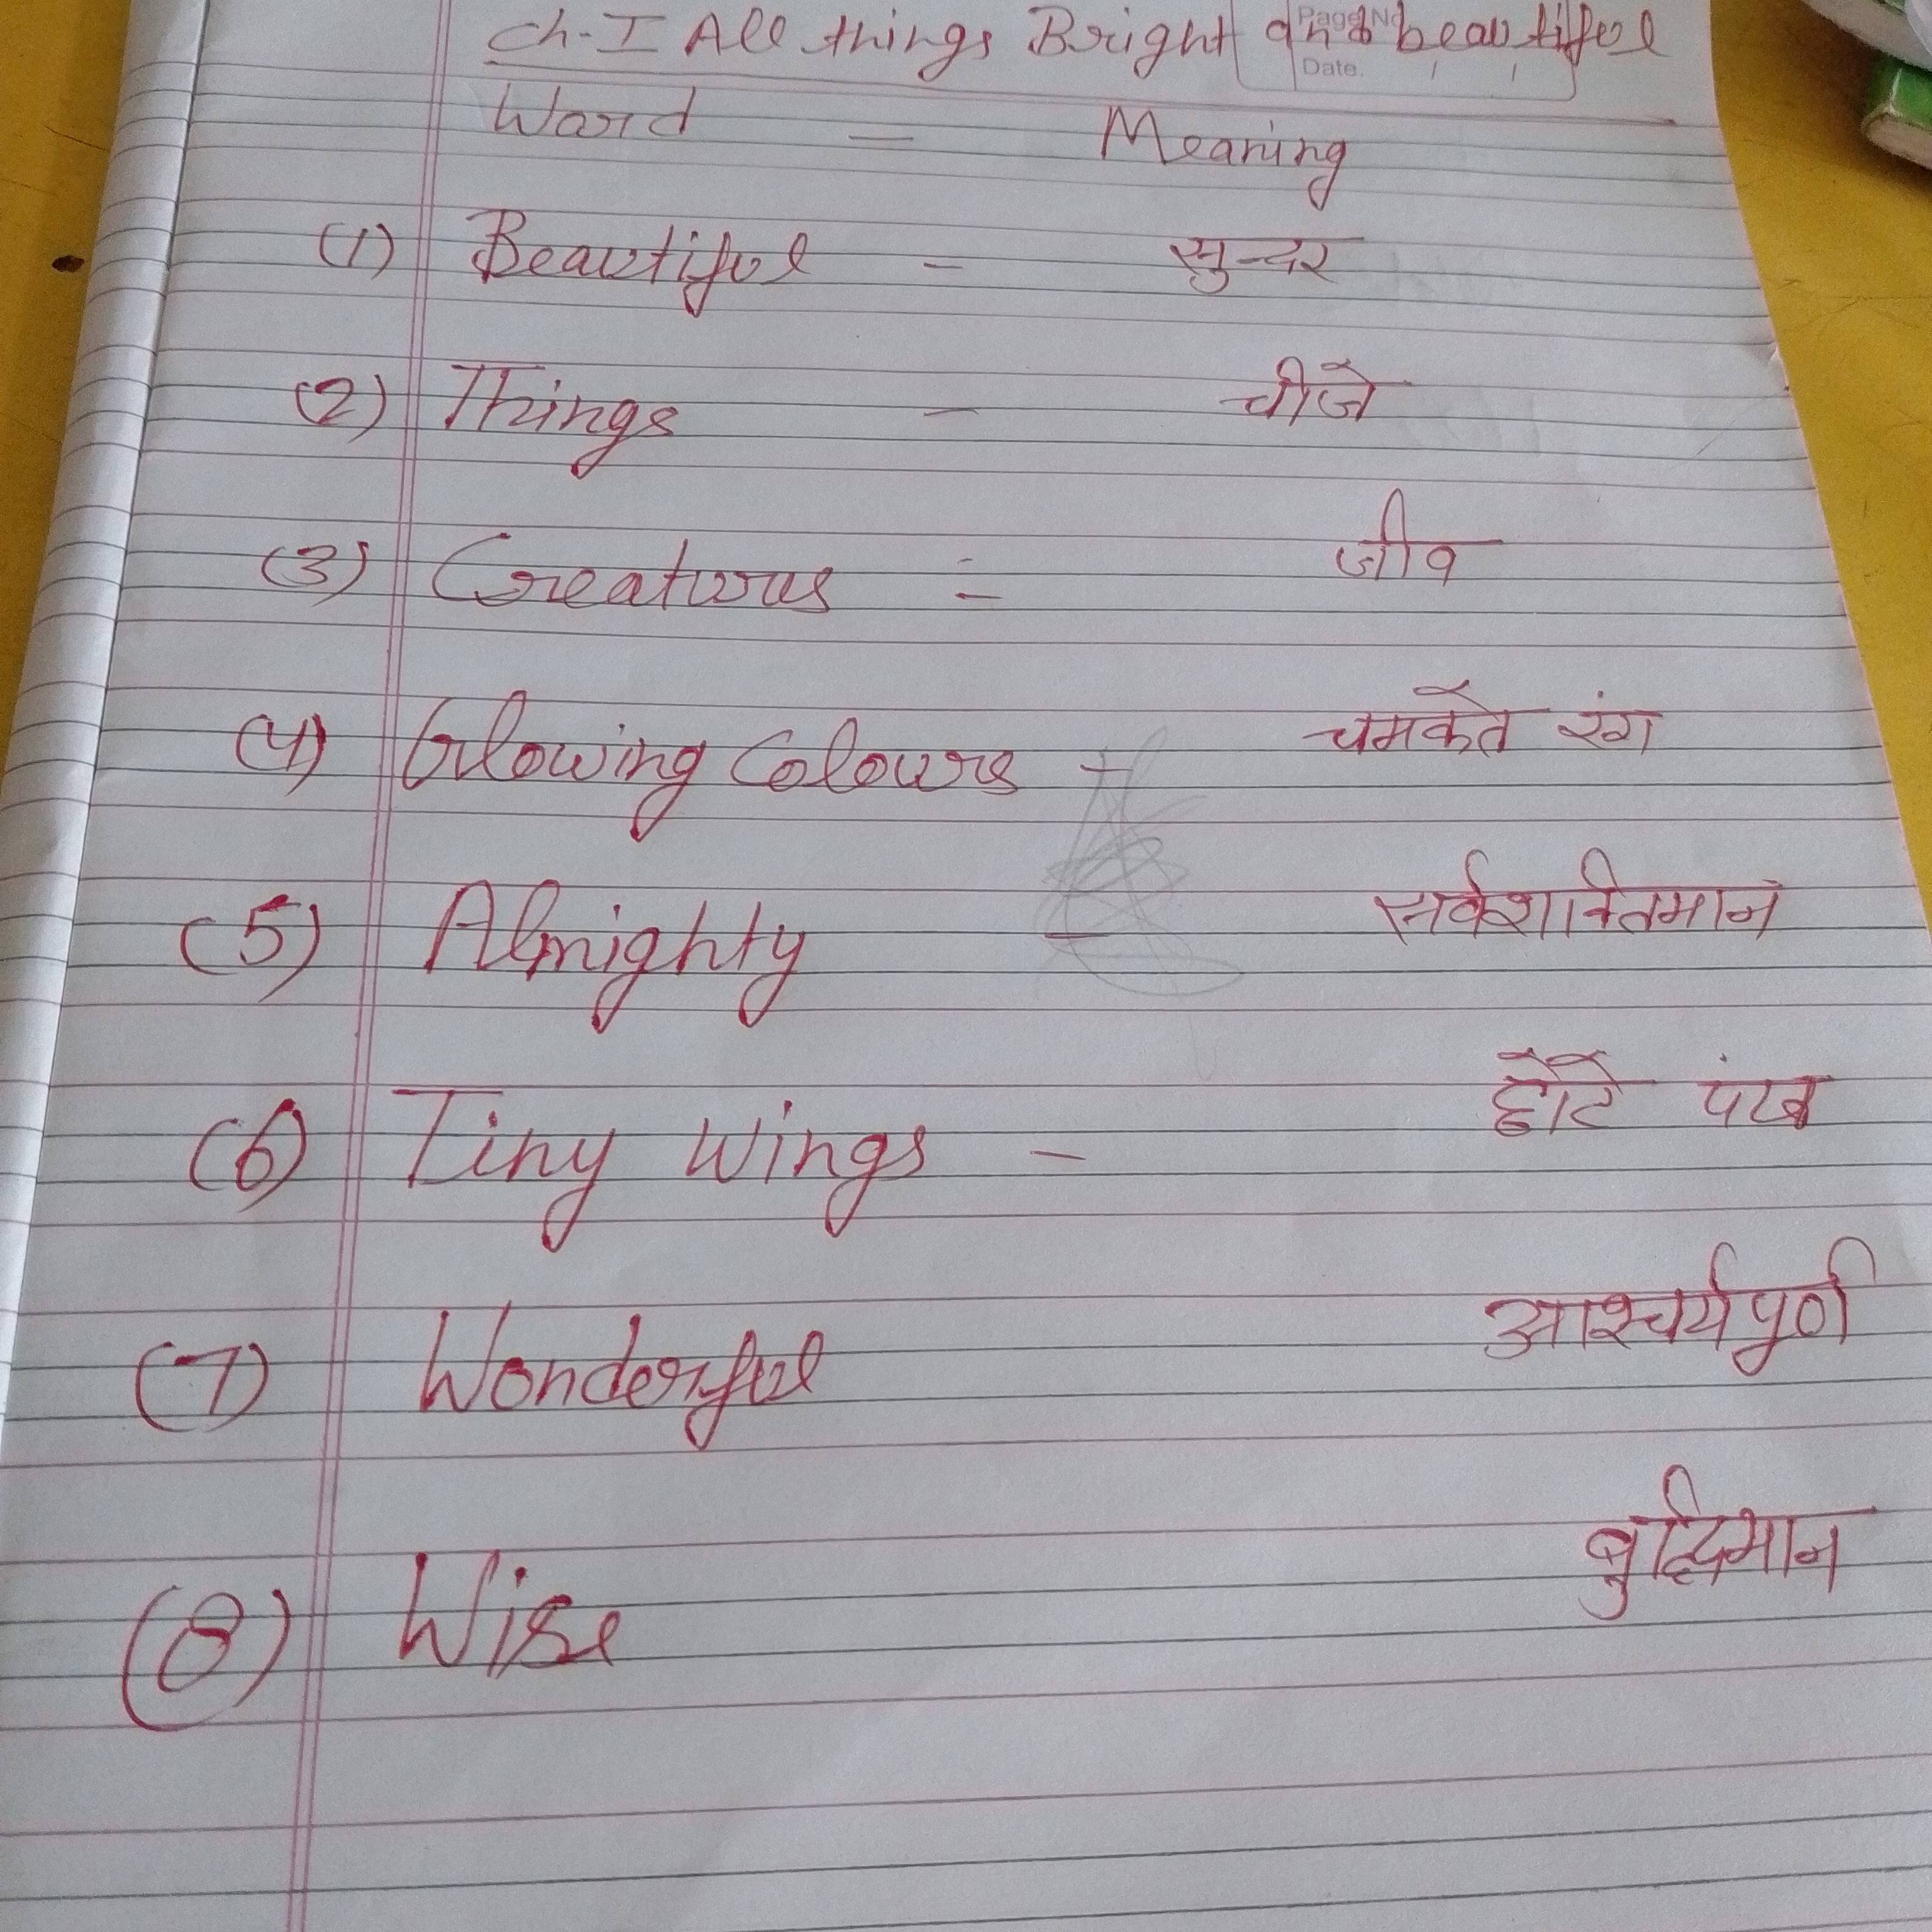 Ch-I All things Bright and beautiful
Page No.
Date. / /
Word = Meaning
(1) Beautiful - सुन्दर
(2) Things - चीजे
(3) Creatures = जीव
(4) Glowing Colours - चमकते रंग
(5) Almighty - सर्वशक्तिमान
(6) Tiny wings - छोटे पंख
(7) Wonderful आश्चर्यपूर्ण
(8) Wise बुद्धिमान